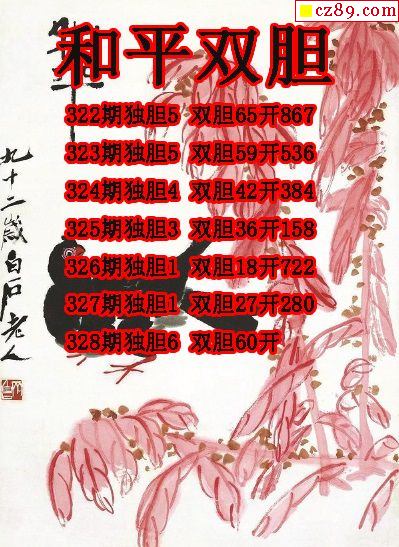 cz89.com
和平双胆
322期独胆5 双胆65开867
323期独胆5 双胆59开536
324期独胆4 双胆42开384
325期独胆3 双胆36开158
326期独胆1 双胆18开722
327期独胆1 双胆27开280
328期独胆6 双胆60开
九十二歲白石老人